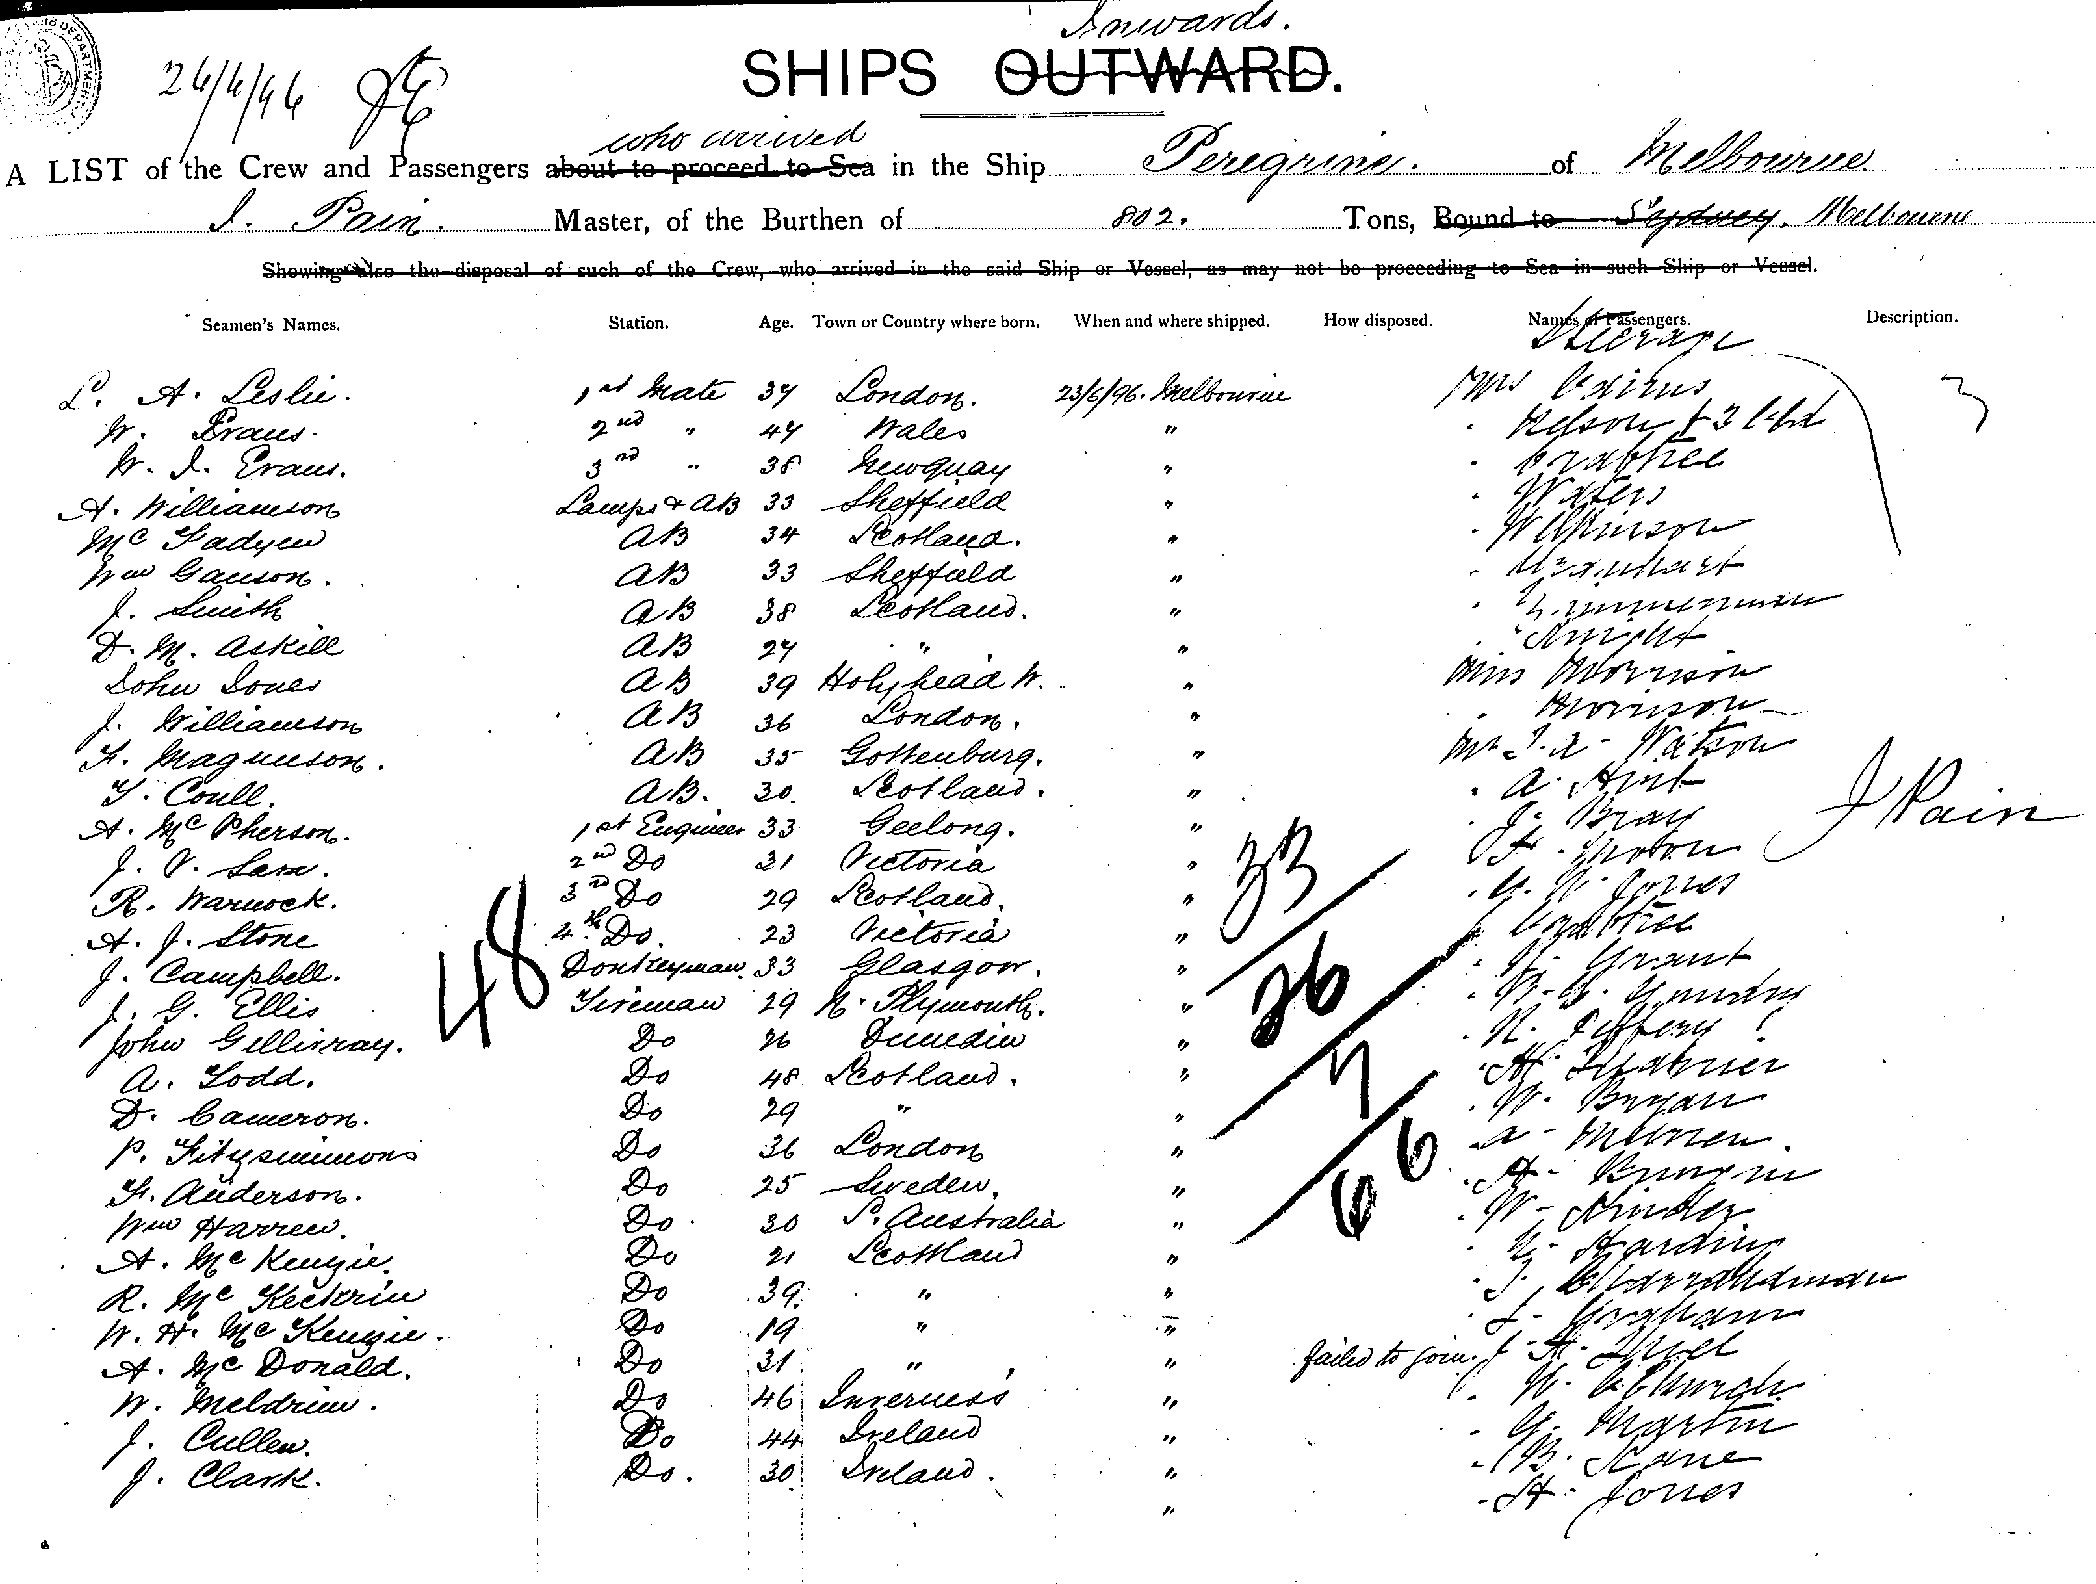 Inwards.
SHIPS OUTWARD.
26/6/96
who arrived
A LIST of the Crew and Passengers about to proceed to Sea in the Ship Peregrine. of Melbourne
J. Pain. Master, of the Burthen of 802. Tons, Bound to Sydney. Melbourne
Showing also the disposal of such of the Crew, who arrived in the said Ship or Vessel, as may not be proceeding to Sea in such Ship or Vessel.
Seamen's Names. Station. Age. Town or Country where born. When and where shipped. How disposed. Names of Passengers. Description.
Steerage
L. A. Leslie. 1st Mate 37 London. 23/6/96. Melbourne Mrs Cairns 3
W. Evans. 2nd " 47 Wales " " Nelson & 3 Chd
W. J. Evans. 3rd " 38 Newquay " " Crabtree
A. Williamson Lamps & AB 33 Sheffield " " Waters
Mc Fadyen AB 34 Scotland. " " Wilkinson
Wm Ganson. AB 33 Sheffield " " Urquhart
J. Smith AB 38 Scotland. " " Zimmerman
D. M. Askill AB 27 " " " Knight
John Jones AB 39 Holyhead W. " Miss Morrison
J. Williamson AB 36 London. " " Morrison
F. Magnuson. AB 35 Gottenburg. " Mr J. A. Watson
T. Coull. AB. 30. Scotland. " " A.
A. Mc Pherson. 1st Engineer 33 Geelong. " " J. Bray J Pain
J. V. 2nd Do 31 Victoria " " F.
R. Warnock. 3rd Do 29 Scotland. " " Jones
A. J. Stone 4th Do. 23 Victoria " Crabtree
J. Campbell. Donkeyman. 33 Glasgow. " " Grant
J. G. Ellis Fireman 29 N. Plymouth. "
John Gillivray. Do 26 Dunedin " " N. Jeffery
A. Todd. Do 48 Scotland. " " A.
D. Cameron. Do 29 " " " W. Bryan
P. Fitzsimmons Do 36 London " " A.
F. Anderson. Do 25 Sweden. " " A.
Wm Harren. Do 30 S. Australia " " W.
A. Mc Kenzie. Do 21 Scotland " " Harding
R. Mc Do 39. " "
W. H. Mc Kenzie. Do 19 " " " Graham
A. Mc Donald. Do 31 " " failed to join.
W. Meldrum. Do 46 Inverness " " W. Church
J. Cullen. Do 44 Ireland " " G. Martin
J. Clark. Do. 30 Ireland. " " B. Kane
" " H. Jones
48
33
26
7
66